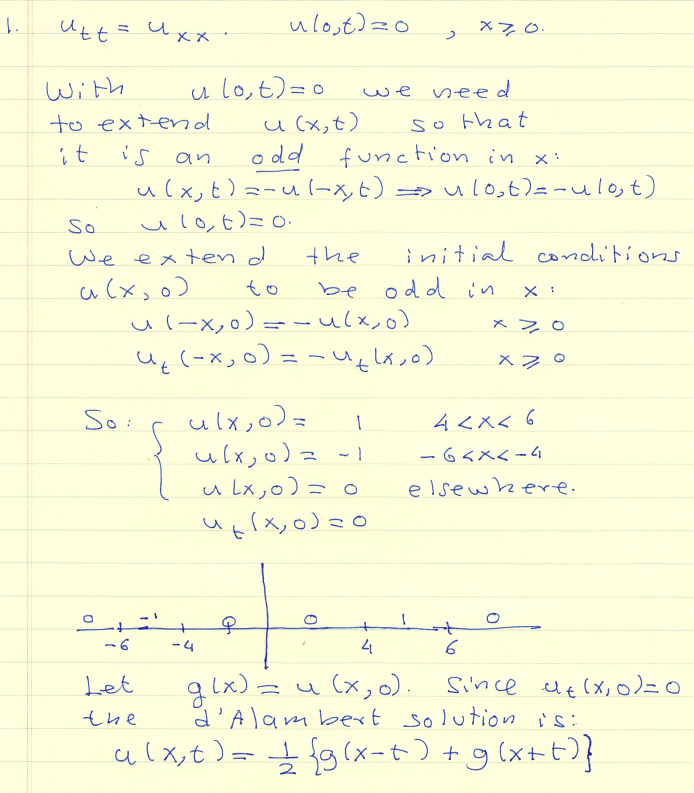 1. u_tt = u_xx. u(0,t)=0, x⩾0.
With u(0,t)=0 we need
to extend u(x,t) so that
it is an odd function in x:
u(x,t)=-u(-x,t) ⟹ u(0,t)=-u(0,t)
So u(0,t)=0.
We extend the initial conditions
u(x,0) to be odd in x:
u(-x,0)=-u(x,0) x⩾0
u_t(-x,0)=-u_t(x,0) x⩾0
So: { u(x,0)= 1 4<x<6
u(x,0)= -1 -6<x<-4
u(x,0)= 0 elsewhere.
u_t(x,0)=0
0 -1 0 0 1 0
-6 -4 4 6
Let g(x)=u(x,0). Since u_t(x,0)=0
the d'Alambert solution is:
u(x,t)= 1/2 {g(x-t)+g(x+t)}